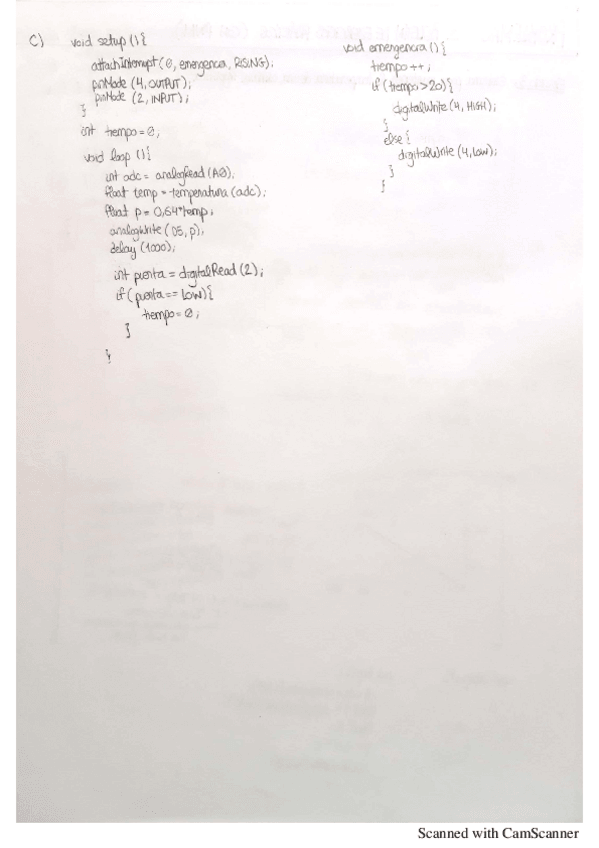 C) void setup () {
attachInterrupt (0, emergencia, RISING);
pinMode (4, OUTPUT);
pinMode (2, INPUT);
}
int tiempo = 0;
void loop () {
int adc = analogRead (A0);
float temp = temperatura (adc);
float p = 0,64*temp;
analogWrite (05, p);
delay (1000);
int puerta = digitalRead (2);
if (puerta == LOW) {
tiempo = 0;
}
}
void emergencia () {
tiempo ++;
if (tiempo > 20) {
digitalWrite (4, HIGH);
}
else {
digitalWrite (4, LOW);
}
}
Scanned with CamScanner